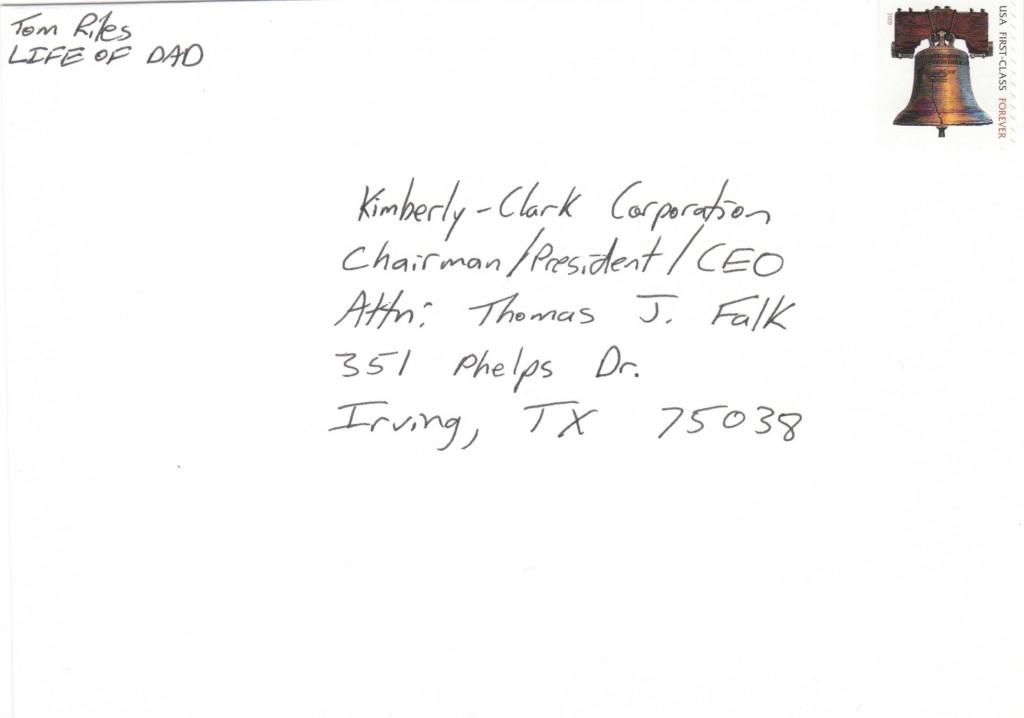 Tom Riles
LIFE OF DAD
USA FIRST-CLASS FOREVER
2009
Kimberly-Clark Corporation
Chairman/President/CEO
Attn: Thomas J. Falk
351 Phelps Dr.
Irving, TX 75038